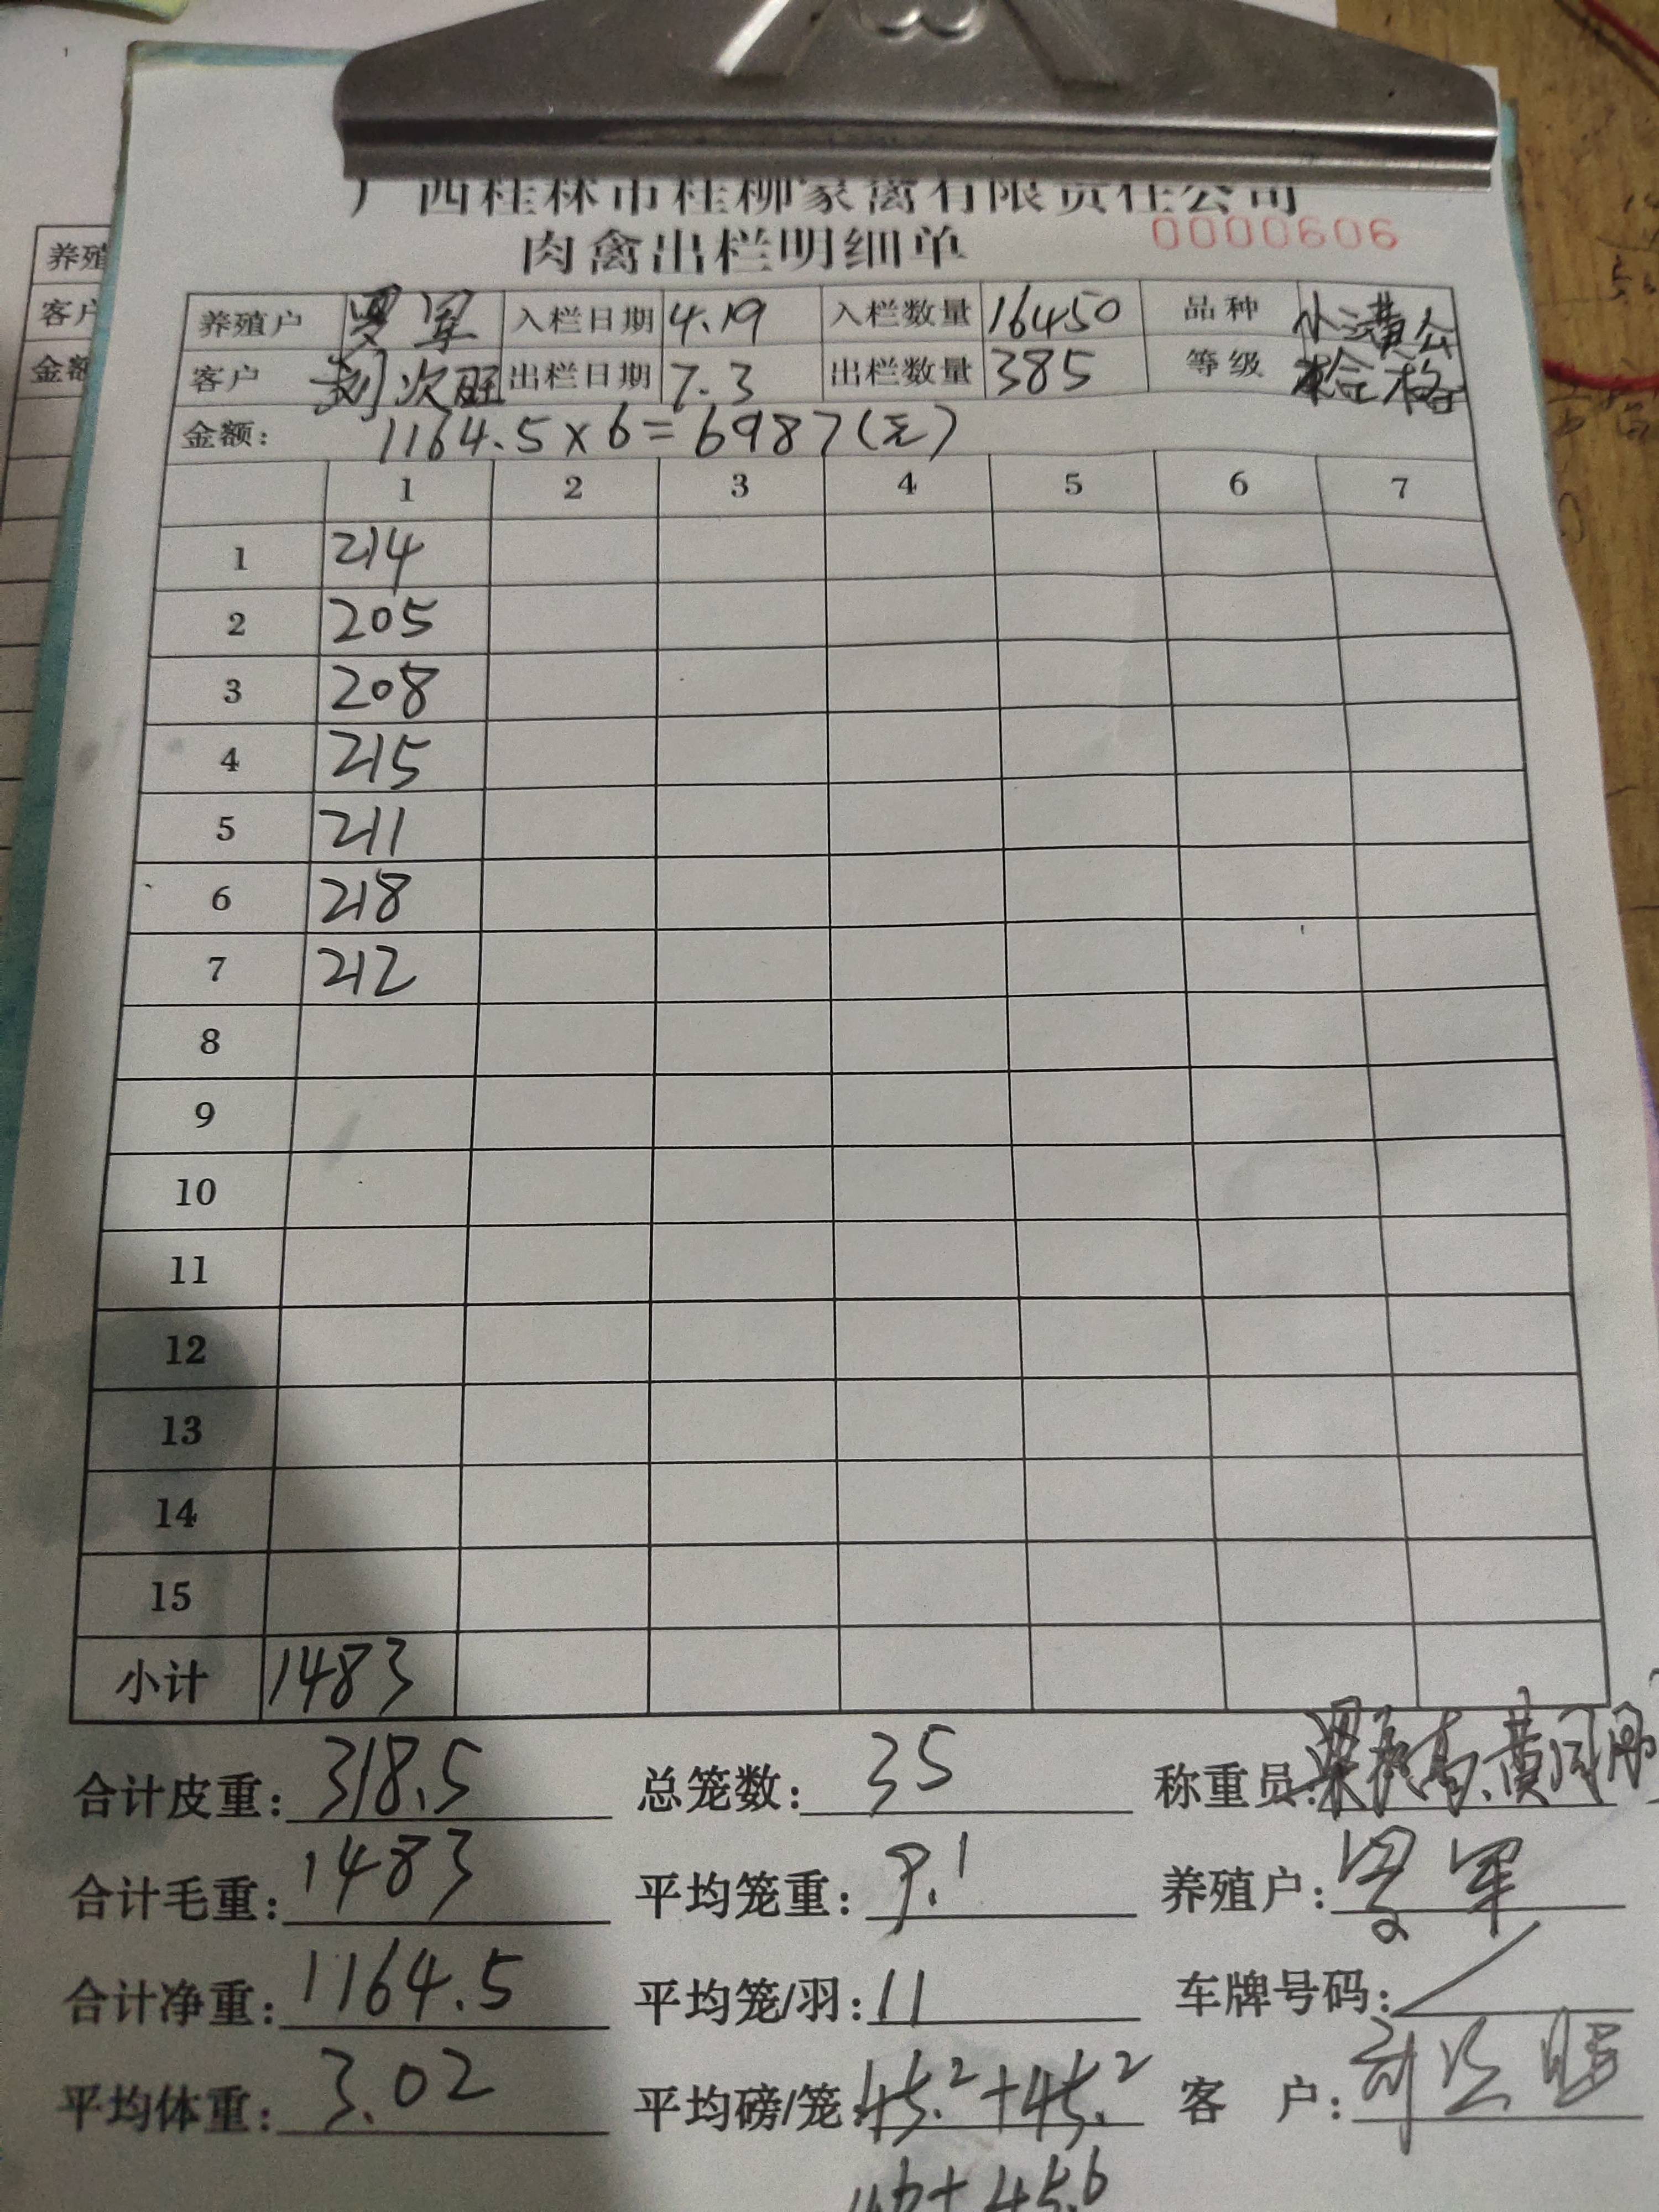 广西桂林市桂柳家禽有限责任公司
肉禽出栏明细单 0000606
养殖户 罗军 入栏日期 4.19 入栏数量 16450 品种 小黄公
客户 刘次旺 出栏日期 7.3 出栏数量 385 等级 合格
金额: 1164.5×6=6987(元)
1 2 3 4 5 6 7
1 214
2 205
3 208
4 215
5 211
6 218
7 212
8
9
10
11
12
13
14
15
小计 1483
合计皮重: 318.5 总笼数: 35 称重员:
合计毛重: 1483 平均笼重: 9.1 养殖户: 罗军
合计净重: 1164.5 平均笼/羽: 11 车牌号码: /
平均体重: 3.02 平均磅/笼: 45.2+45.2 客户: 刘次旺
46+45.6
养殖
客户
金额